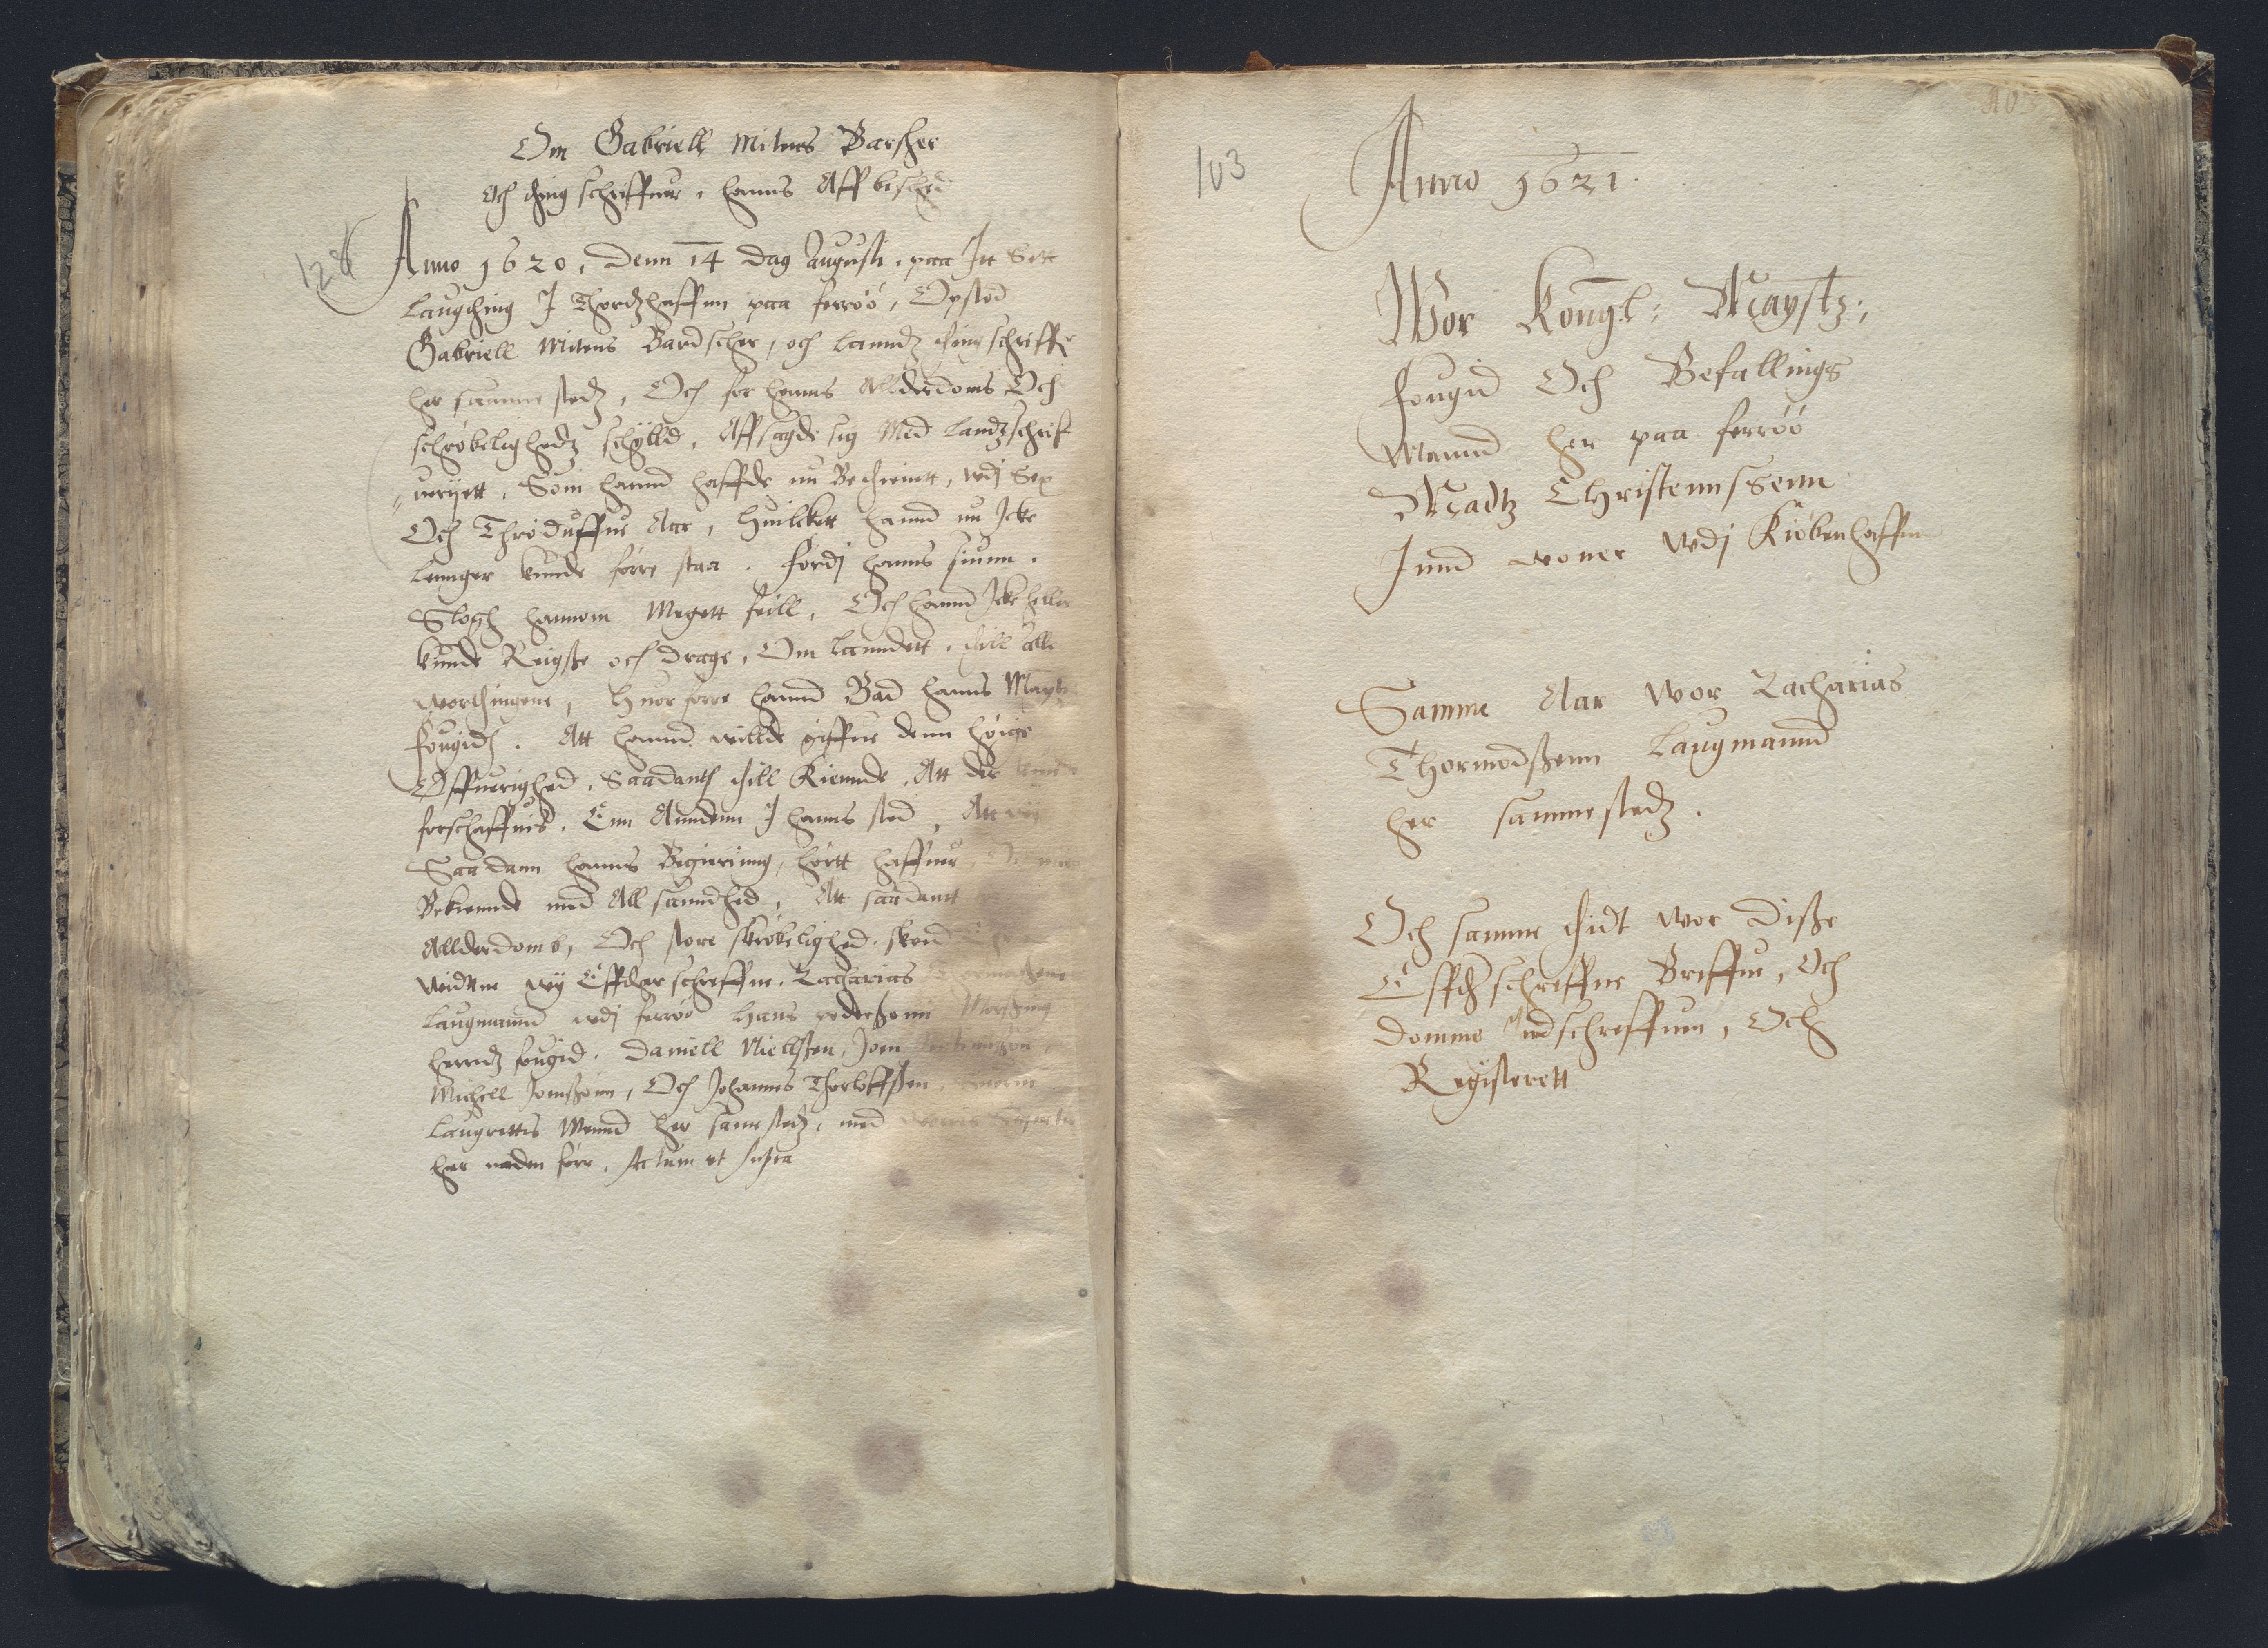 Om Gabriell Mitens Barsker
Och thing schriffuer, hanns Affbeschid
128
Anno 1620, denn 14 dag Augusti, paa Itt Sett
Laugthing I Thordzhaffnn paa ferröö, Opstod
Gabriell Mitens Bardscher, och lanndz thing schriffr
her samme stedz, Och for hanns Allderdoms Och
schröbelighedz schylld, Affsagde sig Med Landzschriff
ueriett, Som hannd haffde nu Bethientt, wdj Sex
Och Thröduffue Aar, Huilckett hannd nu Icke
lennger kunde förre staa. fordj hanns siunn.
Slogh hannom Megett feill, Och hannd Icke heller
kunde Reigsse och drage, Om lanndett, thill alle
worthingene, Huor forre hannd Bad hanns Maytz
fougidh. Att hannd willde giffue denn höige
Öffuerighed, Saadantt thill Kiennde, Att der
forschaffuis, Enn Anndenn I hanns sted, Att
Saadann hanns Begierinng, hörtt haffuer
Bekiennde med All sanndhed, Att saadantt
Allderdomb, Och store skröbelighed, skend
widtne wij Effther schreffne, Zacharias Thormodsenn
Laugmannd wdj ferröö Hans pederssonn
herredz fougid, Daniell Niellssen, Joen
Michell Joennssönn, Och Johannes Thorloffssen
Laugrettis Mennd her samme stedz, med
her neden förr, Actum ut supra
103
Anno 1621.
Wor Konngl: Maystz:
fougid Och Befallings
Mannd her paa ferröö
Madtz Christennssenn
Innd woner wdj Kiöbenhaffnn
Samme Aar wor Zacharias
Thormodssenn Laugmannd
her sammestedz.
Och samme thidt wor disse
Effthschreffne Breffue, Och
domme Indschreffuen, Och
Registerett